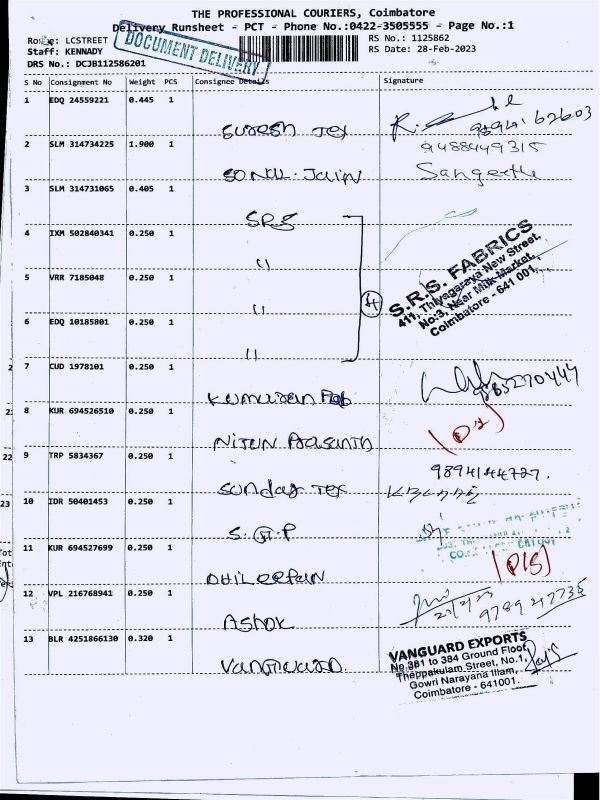 THE PROFESSIONAL COURIERS, Coimbatore
Delivery Runsheet - PCT - Phone No.:0422-3505555 - Page No.:1
LCSTREET
RS No.: 1125862
Staff: KENNADY
RS Date: 28-Feb-2023
DRS No.: DCJB112586201
DOCUMENT DELIVERY
S No Consignment No Weight PCS Consignee Details Signature
1 EDQ 24559221 0.445 1
Suresh Tex
2 SLM 314734225 1.900 1
9488449315
Sonul. Jain Sangeetha
3 SLM 314731065 0.405 1
SRS
4 IXM 502840341 0.250 1
"
5 VRR 7185048 0.250 1
"
6 EDQ 10185801 0.250 1
"
4
S.R.S. FABRICS
411, Thiyagaraya New Street,
No:3, Near Milk Market,
Coimbatore - 641 001.
7 CUD 1978101 0.250 1
Kumaran Fab
8 KUR 694526510 0.250 1
Nitun Prasanth
9 TRP 5834367 0.250 1
9894144727.
Sunday Tex
10 IDR 50401453 0.250 1
S.G.P
11 KUR 694527699 0.250 1
Dhileefan
12 VPL 216768941 0.250 1
Ashok
13 BLR 4251866130 0.320 1
Vanguard.
VANGUARD EXPORTS
No.381 to 384 Ground Floor,
Theppakulam Street, No.1,
Gowri Narayana Illam,
Coimbatore - 641001.